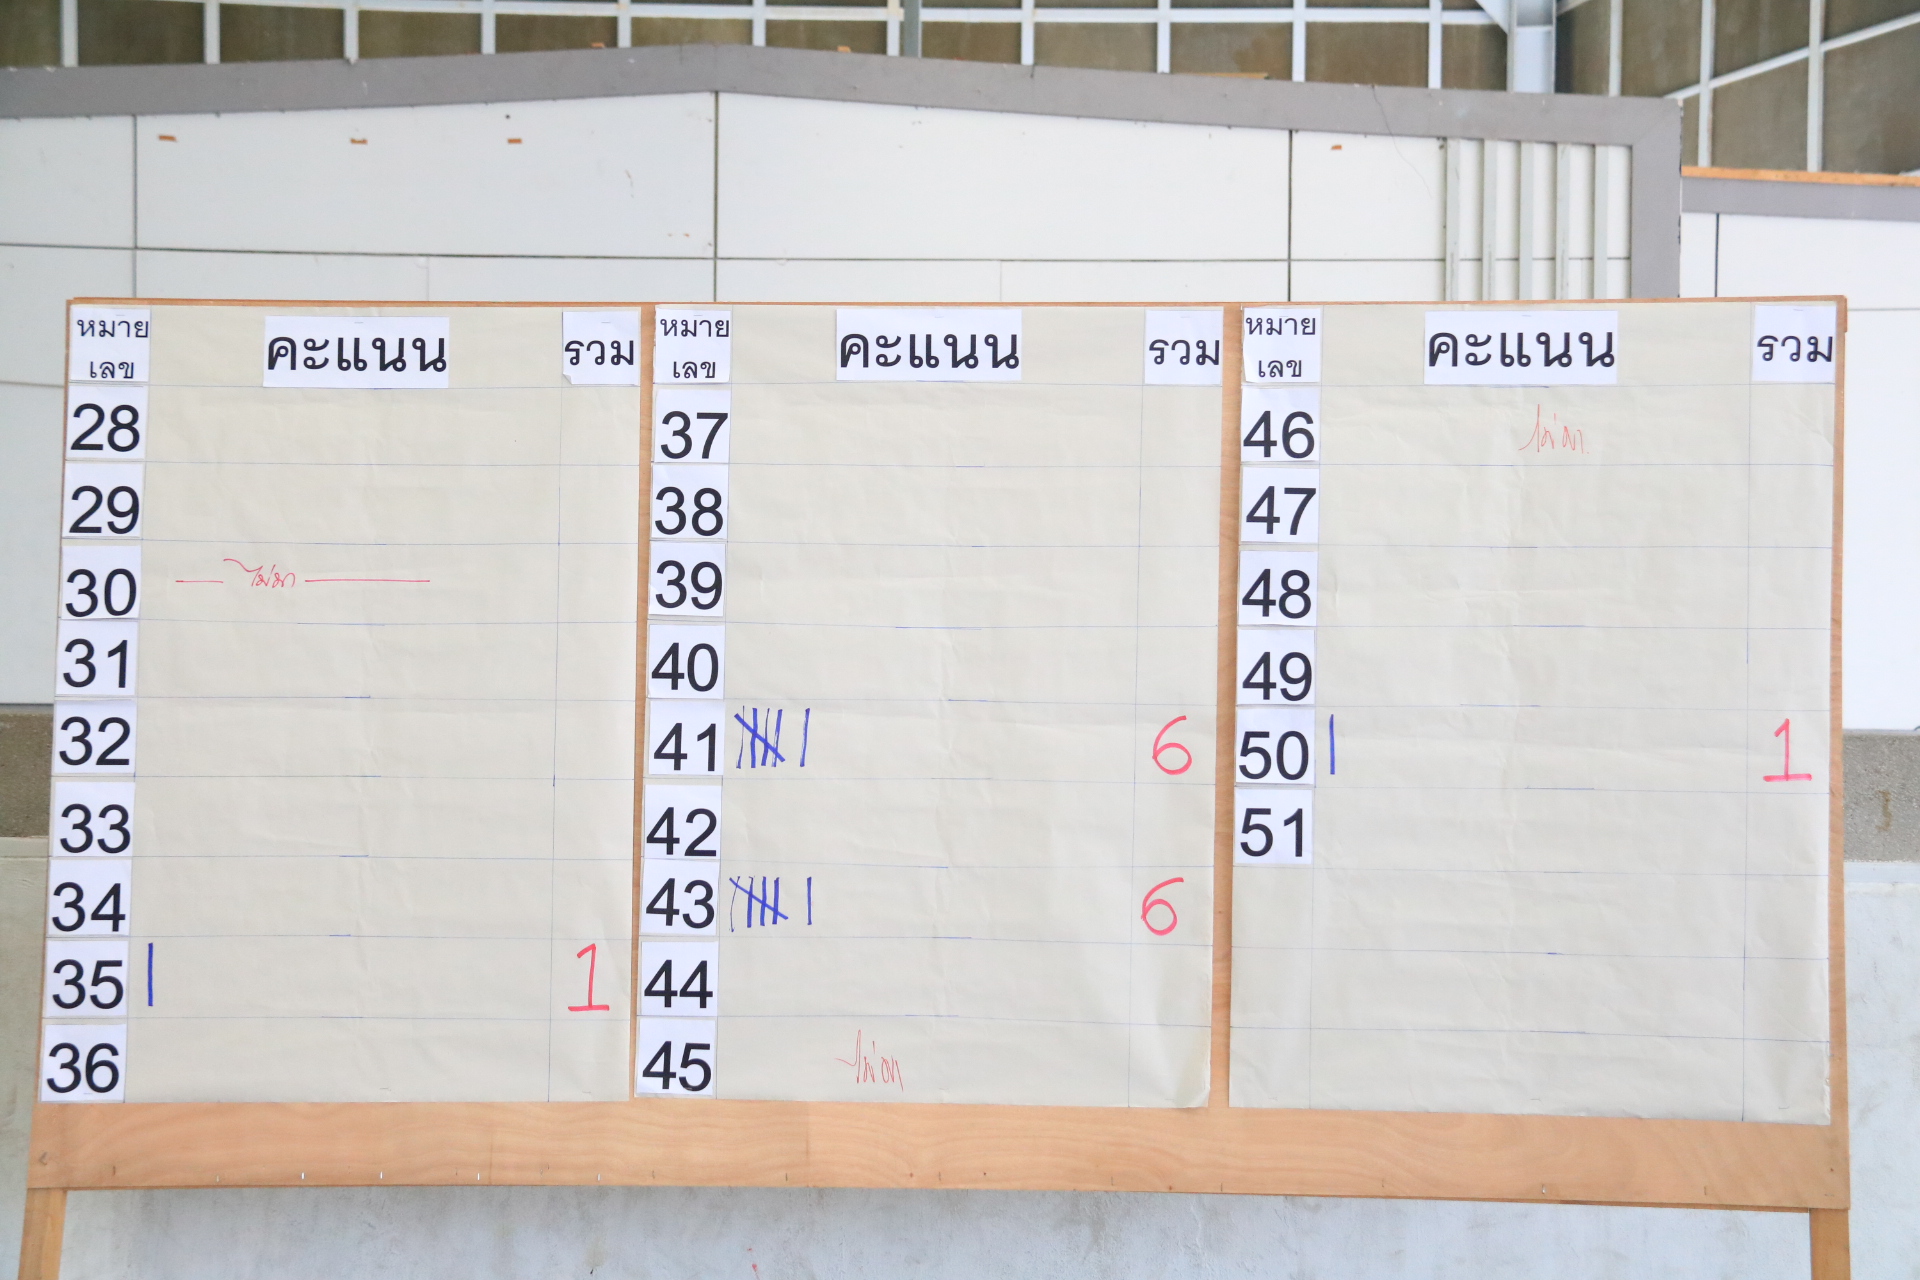 หมาย
เลข คะแนน รวม
28
29
30 ไม่มา
31
32
33
34
35 | 1
36
หมาย
เลข คะแนน รวม
37
38
39
40
41 |||| | 6
42
43 |||| | 6
44
45 ไม่มา
หมาย
เลข คะแนน รวม
46 ไม่มา
47
48
49
50 | 1
51